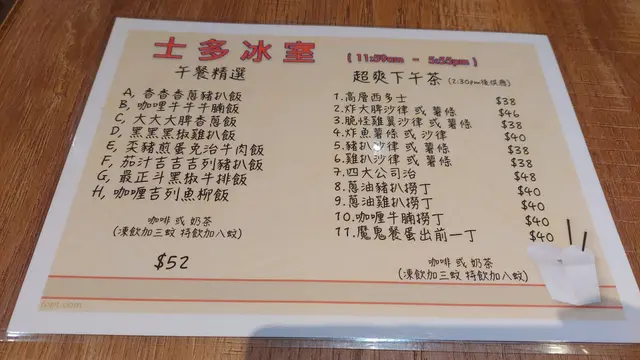 士多冰室 (11:59am - 5:55pm)
午餐精選
A, 香香香蔥豬扒飯
B, 咖哩牛牛牛腩飯
C, 大大大髀香蔥飯
D, 黑黑黑椒雞扒飯
E, 炎豬煎蛋免治牛肉飯
F, 茄汁吉吉吉列豬扒飯
G, 最正斗黑椒牛排飯
H, 咖喱吉列魚柳飯
咖啡 或 奶茶
(凍飲加三蚊 特飲加八蚊)
$52
超爽下午茶 (2:30pm後供應)
1.高層西多士 $38
2.炸大髀沙律 或 薯條 $46
3.脆怪雞翼沙律 或 薯條 $38
4.炸魚薯條 或 沙律 $40
5.豬扒沙律 或 薯條 $38
6.雞扒沙律 或 薯條 $38
7.四大公司治 $48
8.蔥油豬扒撈丁 $40
9.蔥油雞扒撈丁 $40
10.咖喱牛腩撈丁 $40
11.魔鬼餐蛋出前一丁 $40
咖啡 或 奶茶
(凍飲加三蚊 特飲加八蚊)